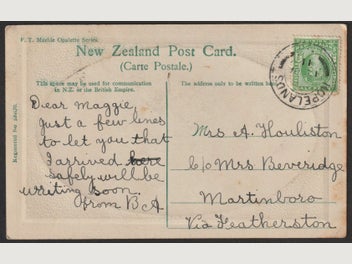 F. T. Marble Opalette Series.
New Zealand Post Card.
(Carte Postale.)
This space may be used for communication
in N.Z. or the British Empire.
The address only to be written
Dear Maggie,
Just a few lines
to let you that
I arrived here
safely will be
writing soon.
from B A
Mrs A. Houliston
C/o Mrs Beveridge
Martinboro
Via Featherston
HOPELANDS
Registered No